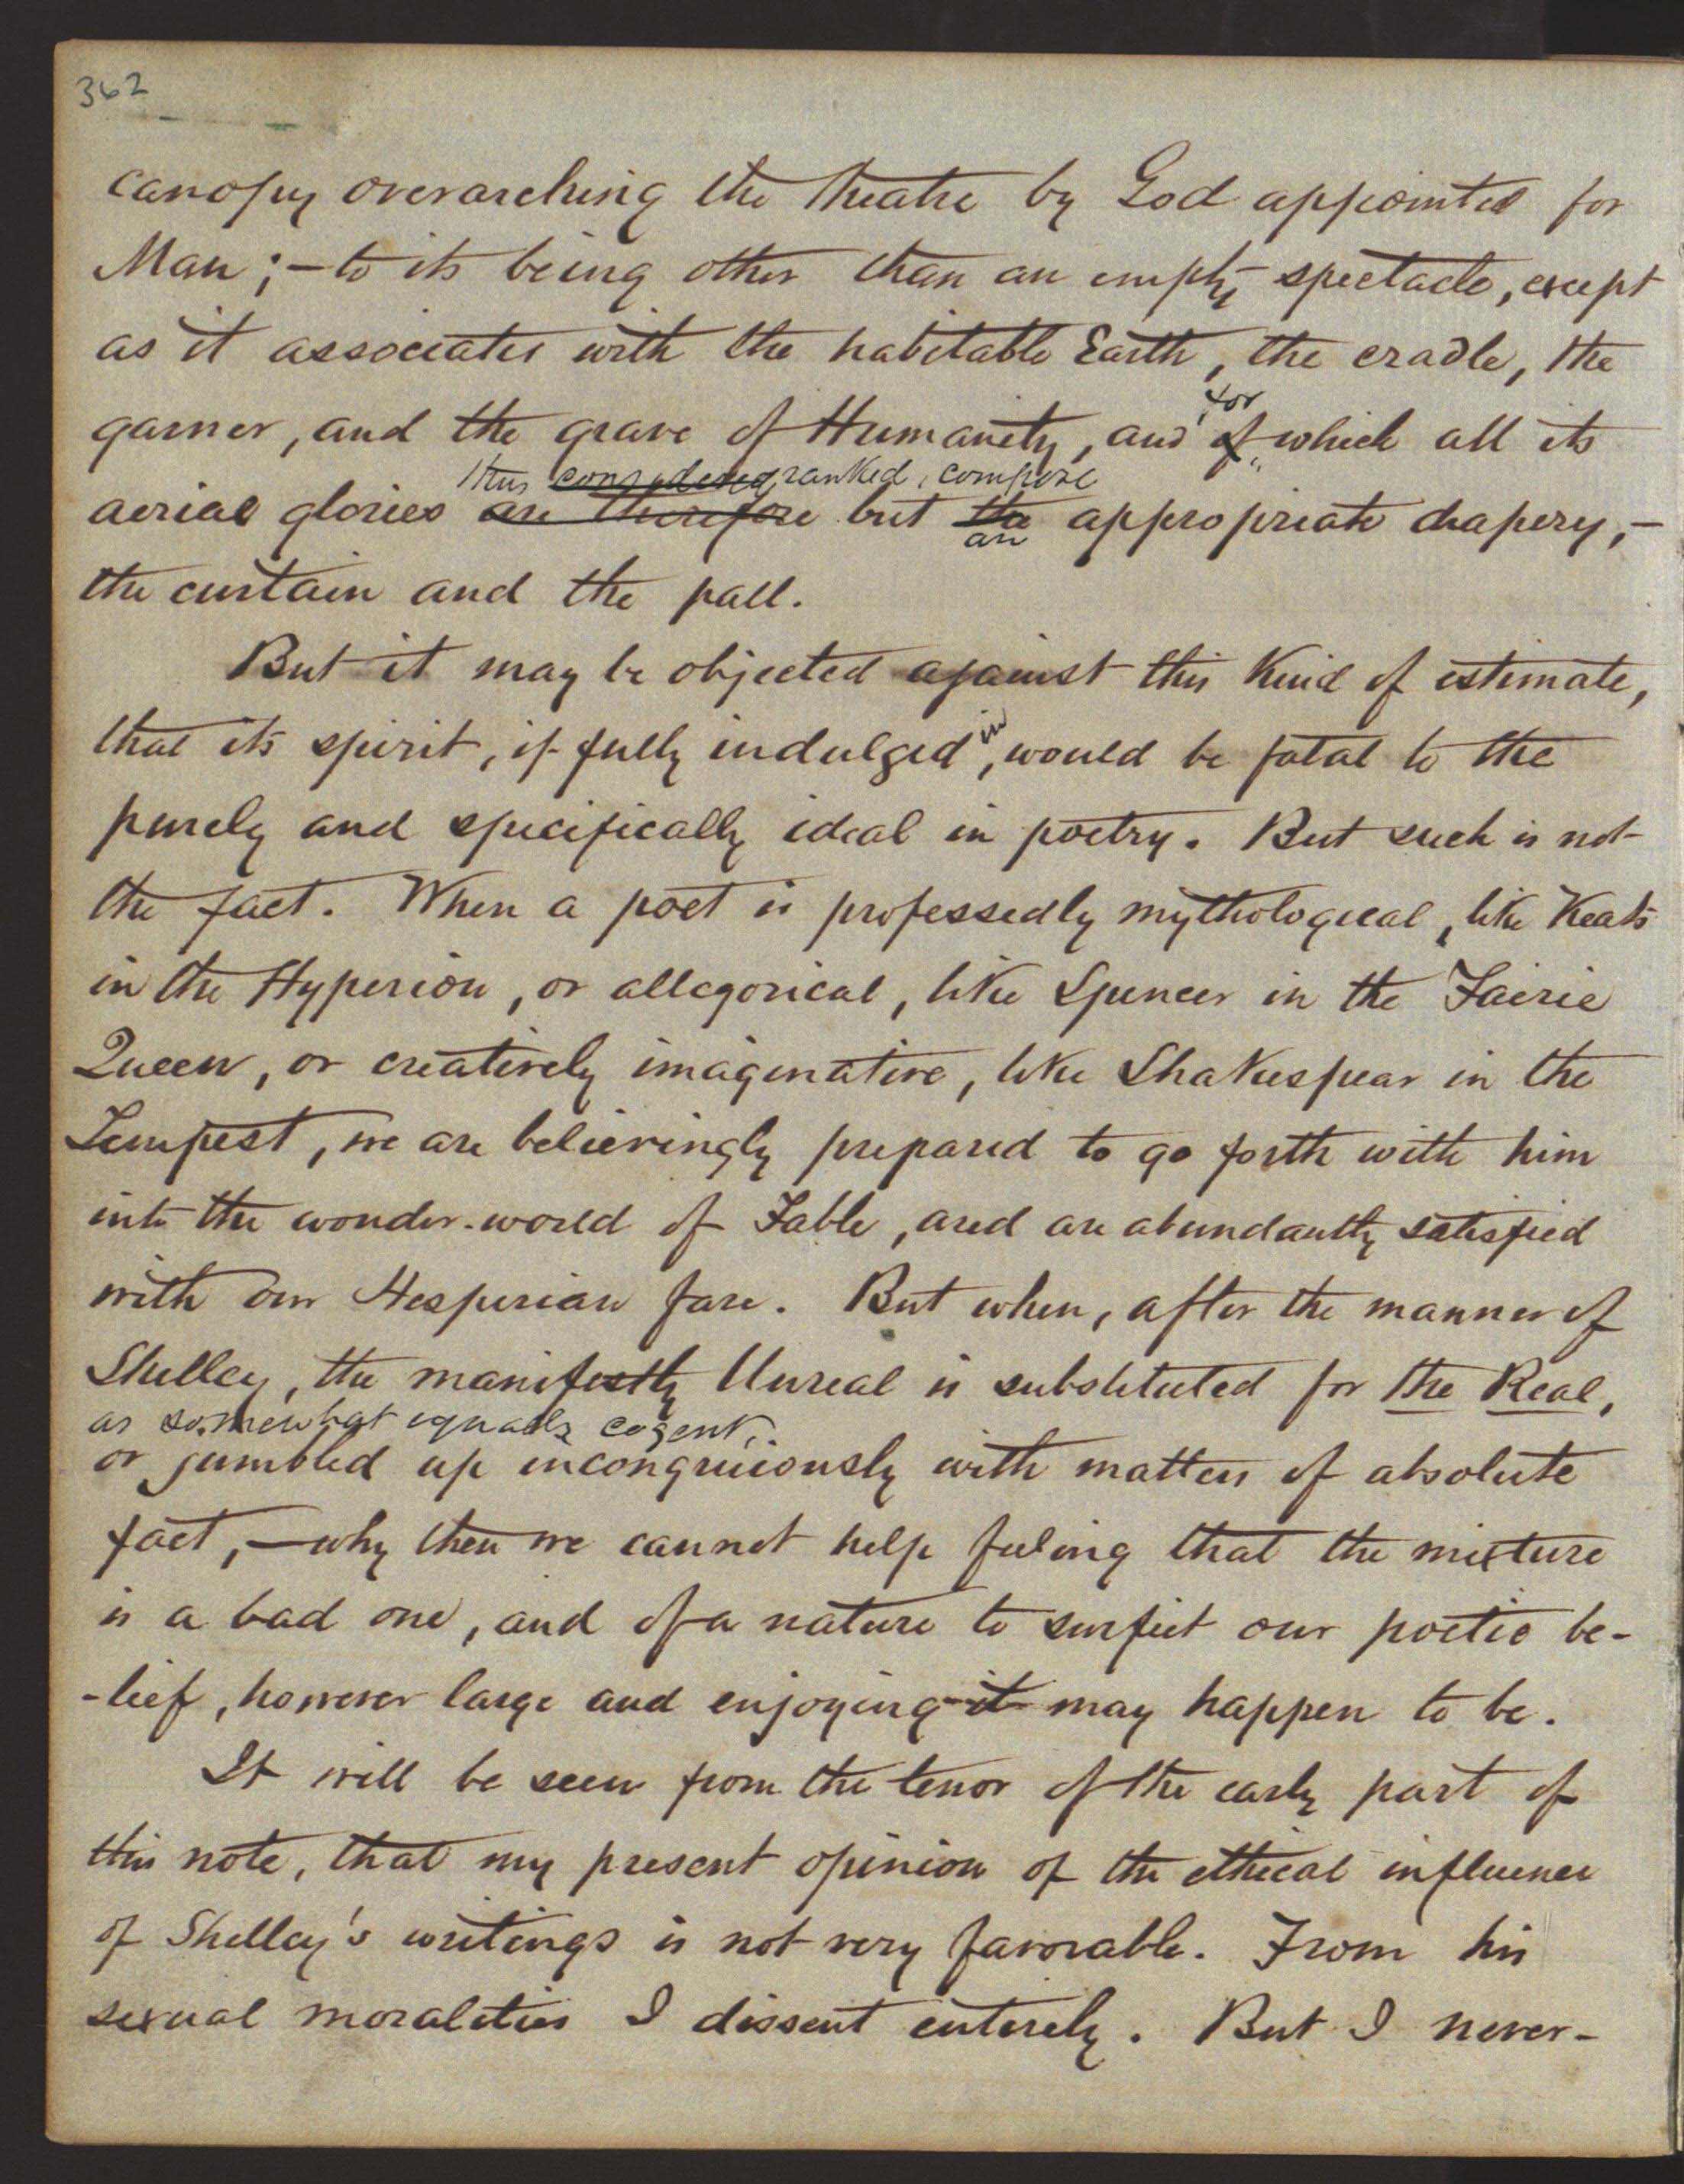 362
canopy overarching the theatre by God appointed for
Man ; – to its being other than an empty spectacle, except
as it associates with the habitable Earth, the cradle, the
garner, and the grave of Humanity, and of which all its
for
thus considered ranked, compose
aerial glories are therefore but the appropriate drapery, –
an
the curtain and the pall.
But it may be objected against this kind of estimate,
that its spirit, if fully indulged in, would be fatal to the
purely and specifically ideal in poetry. But such is not
the fact. When a poet is professedly mythological, like Keats
in the Hyperion, or allegorical, like Spencer in the Fairie
Queen, or creatively imaginative, like Shakespear in the
Tempest, we are believingly prepared to go forth with him
into the wonder-world of Fable, and are abundantly satisfied
with our Hesperian fare. But when, after the manner of
Shelley, the manifestly Unreal is substituted for the Real,
as somewhat equally cogent,
or jumbled up incongruiously with matters of absolute
fact, – why then we cannot help feeling that the mixture
is a bad one, and of a nature to surfeit our poetic be-
-lief, however large and enjoying it may happen to be.
It will be seen from the tenor of the early part of
this note, that my present opinion of the ethical influence
of Shelley's writings is not very favorable. From his
sexual moralities I dissent entirely. But I never-